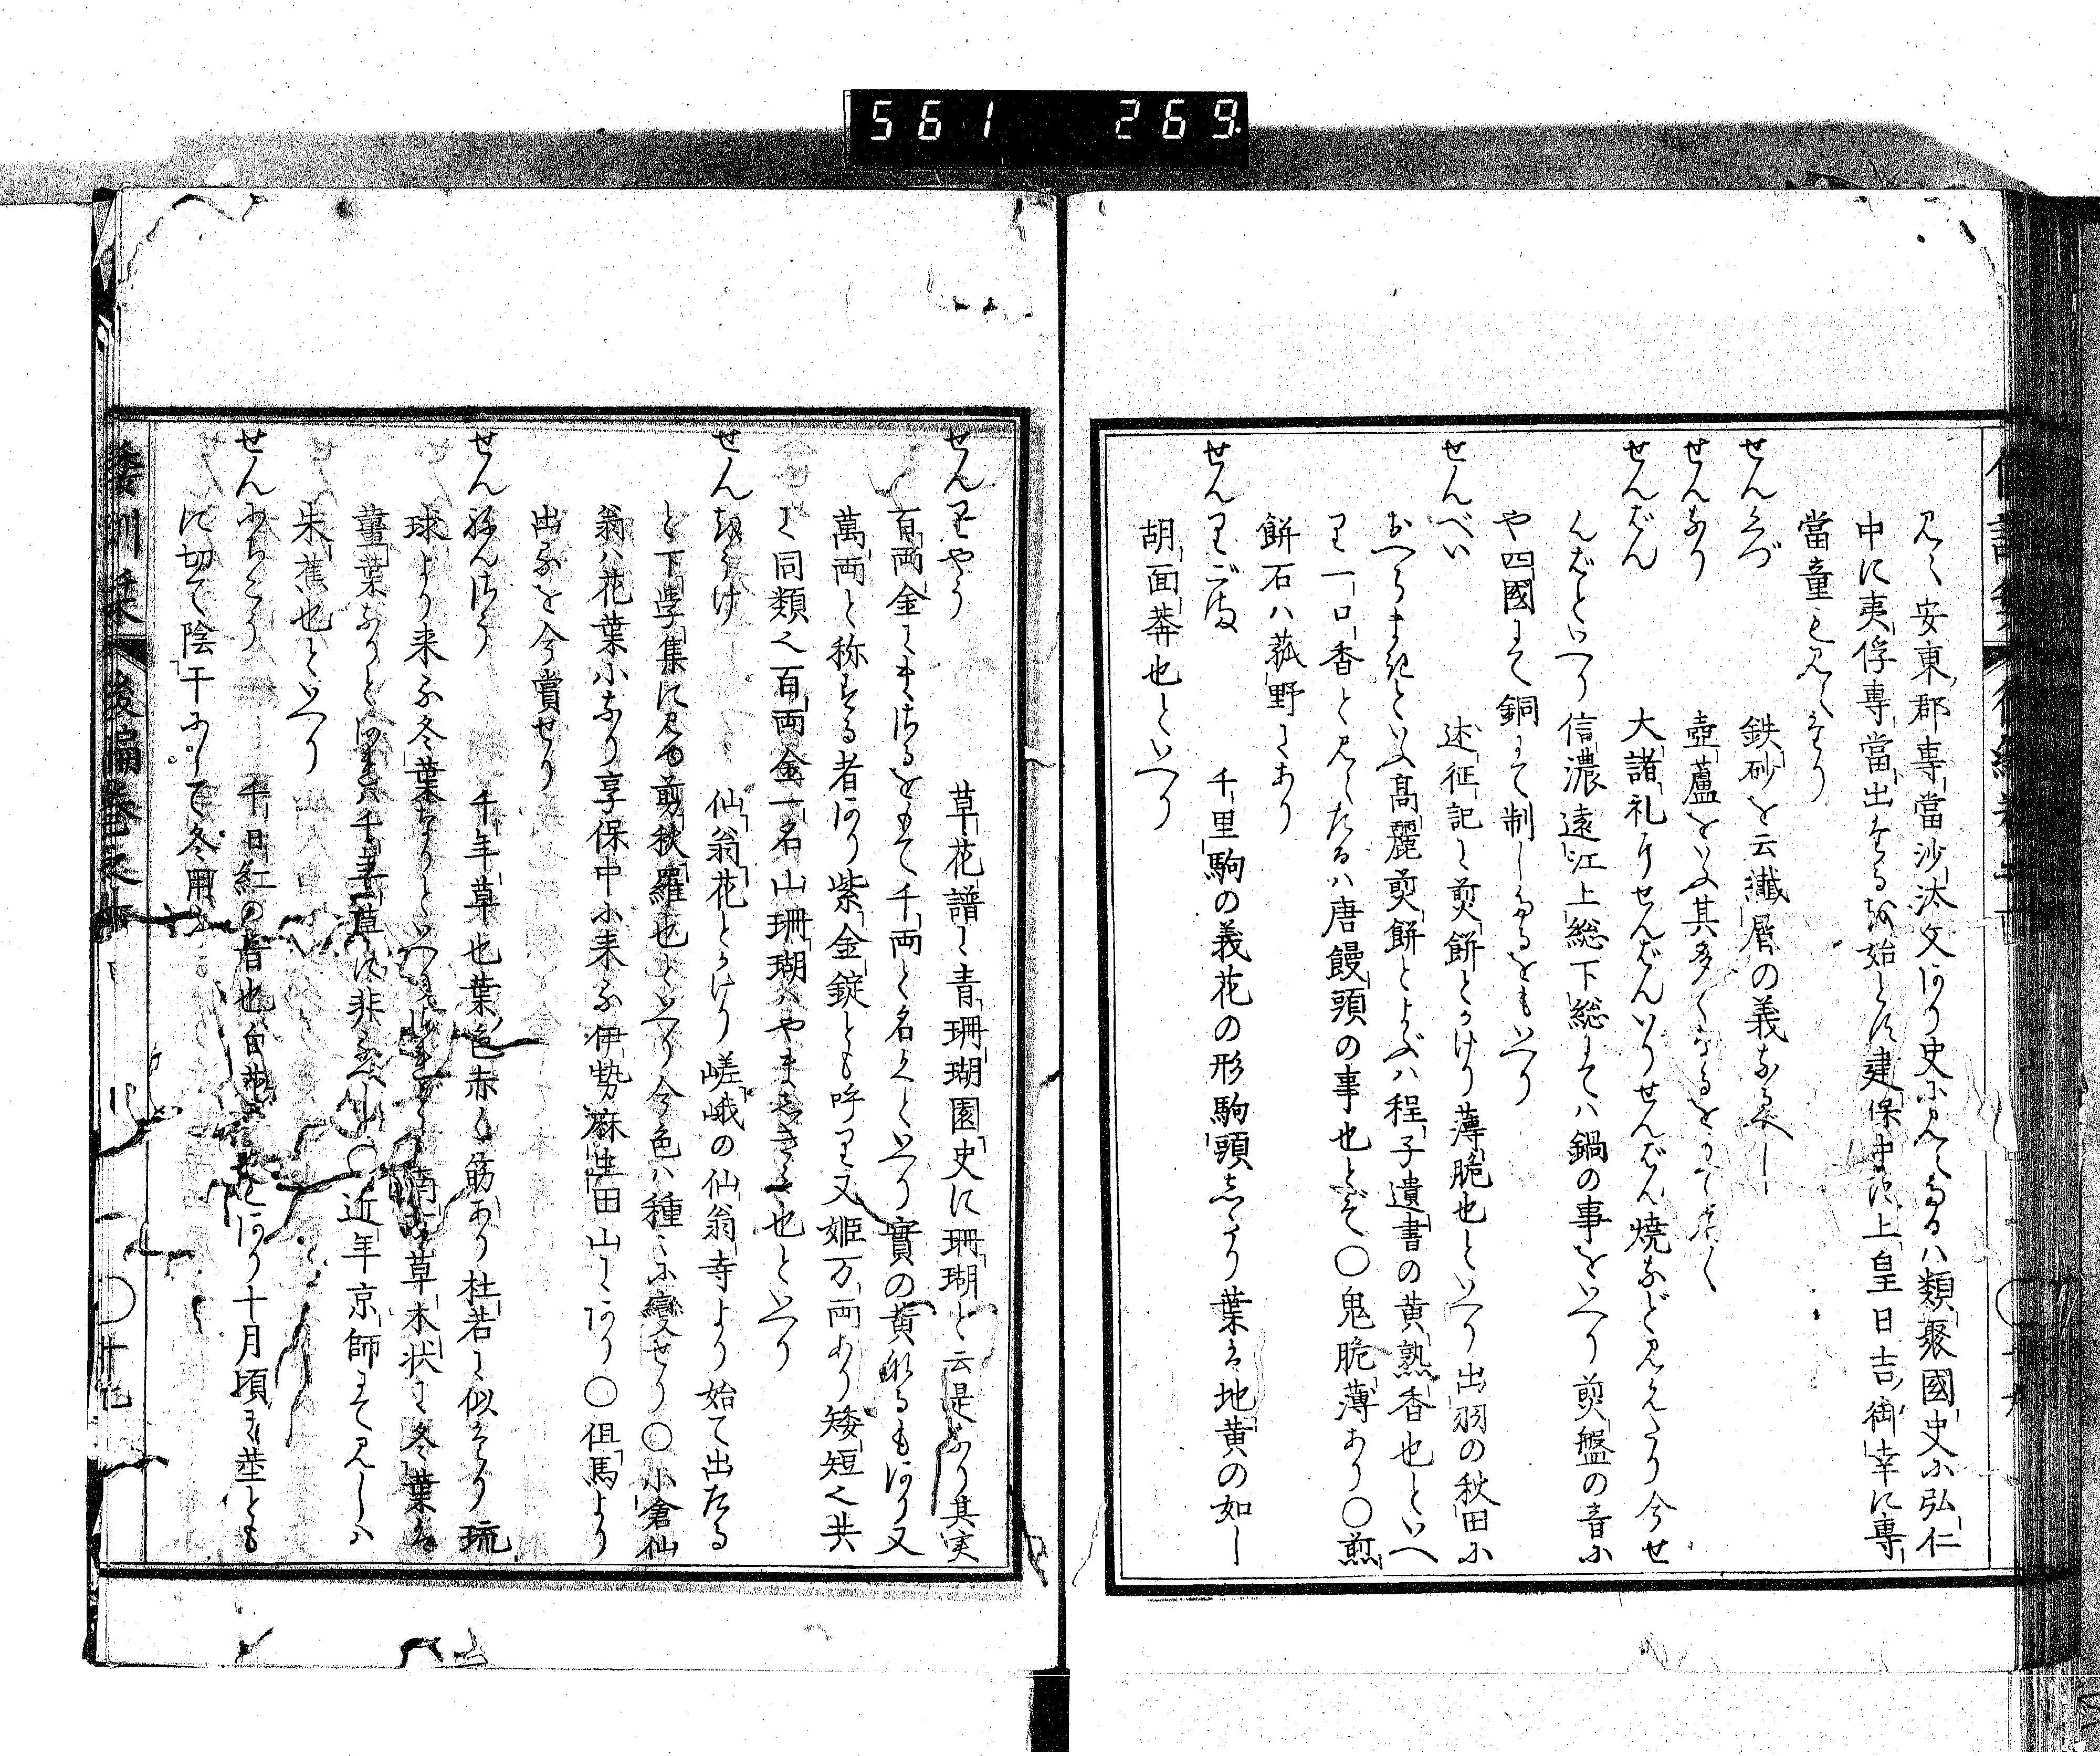 561 269
見ゆ安東郡専當沙汰文あり史に見へたるハ類聚國史に弘仁
中に夷俘専當出たるを始とす建保中に上皇日吉御幸に専
當童も見えたり
せんくづ 鉄砂を云纎屑の義なるべし
せんなり 壺蘆をいふ其多くなるをもて名く
せんばん 大諸礼にせんばんいりせんばん焼など見えたり今せ
んばといへり信濃遠江上総下総にてハ鍋の事をいへり煎盤の音に
や四國にて銅にて制しるをもいへり
せんべい 述征記に煎餅とかけり薄脆也といへり出羽の秋田に
おへりまきといふ高麗煎餅とよぶハ程子遺書の黄熟香也といへ
り一口香と見えたるハ唐饅頭の事也とぞ○鬼脆薄あり○煎
餅石ハ菰野にあり
せんりごま 千里駒の義花の形駒頭きたり葉は地黄の如し
胡面莾也といへり
せんりやう 草花譜に青珊瑚園史に珊瑚と云是なり其実
百両金にまさるをもて千両と名くといへり實の黄なるもあり又
萬両と称する者あり紫金錠とも呼り又姫万両あり矮短く共
に同類く百両金一名山珊瑚ハやまたちき也といへり
せんをうけ 仙翁花とかけり嵯峨の仙翁寺より始て出たる
と下学集に見ゆ剪秋羅也といへり今色ハ種々に変せり○小倉仙
翁ハ花葉小なり享保中に来る伊勢麻生田山にあり○但馬より
出るを今賞せり
せんねんさう 千年草也葉色赤く筋あり杜若に似たり琉
球より来る冬葉なりといへり南方草木状に冬葉は
薑葉なりとあれハ千年草に非るべし○近年京師にて見しハ
朱蕉也といへり
せんにちこう 千日紅の音也白花あり十月頃に莖とも
に切て陰干にして冬用ふ
倭訓栞 後編巻之